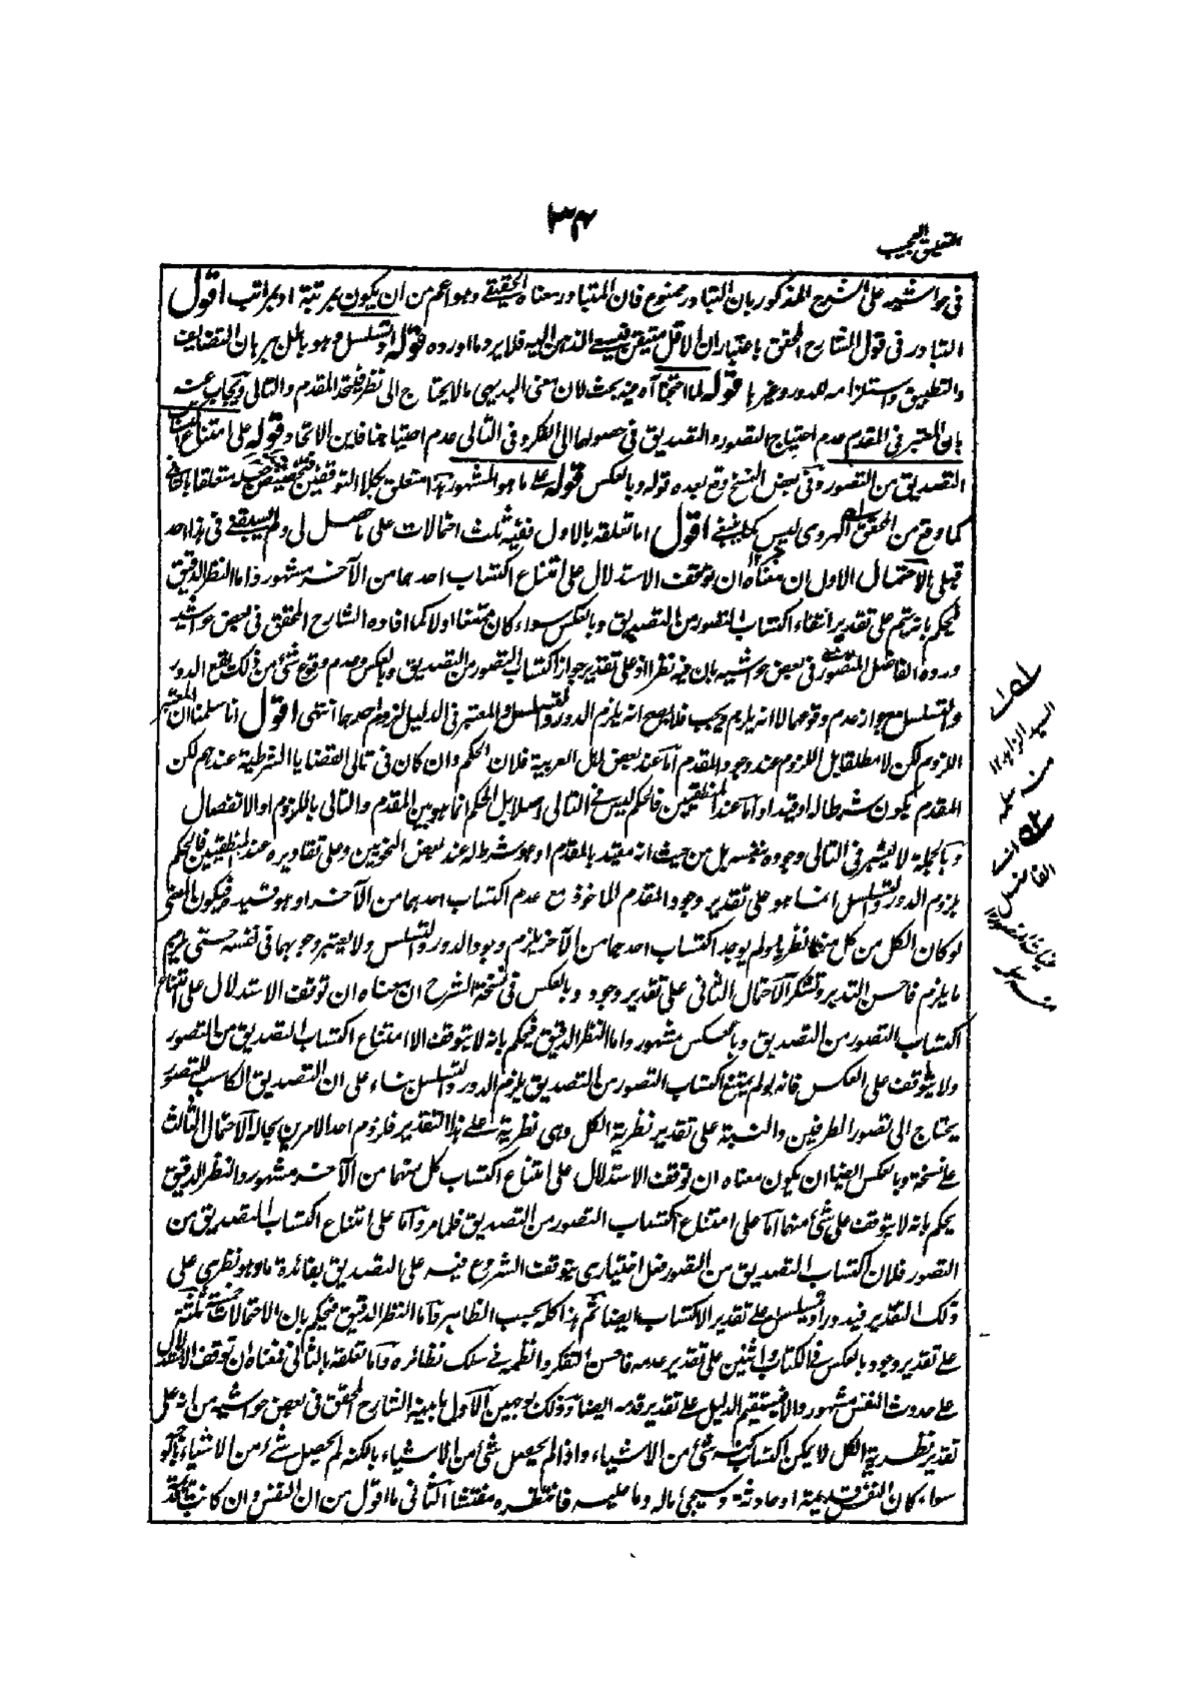 ٣٤
التعليق العجيب
فى حواشيه على الشرح المذكور بان التبادر ممنوع فان المتبادر معناه الحقيقى وهو اعم من ان يكون بمرتبة او بمراتب اقول
التبادر فى قول الشارح المحقق باعتبار ان الاقل متيقن فيسبق الذهن اليه فلا يرد ما اورده قوله او تسلسل وهو باطل ببرهان التضايف
والتطبيق واستلزامه للدور وغيرها قوله لما احتجنا آه فيه بحث لان معنى البديهى مالا يحتاج الى نظر فيتحد المقدم والتالى ويجاب عنه
بان المعتبر فى المقدم عدم احتياج التصور والتصديق فى حصولهما الى الفكر وفى التالى عدم احتياجنا فاين الاتحاد قوله على امتناع اكتساب
التصديق من التصور وفى بعض النسخ وقع بعده قوله وبالعكس قوله على ما هو المشهور هذا متعلق بكلا التوقفين فتخصيص جعله متعلقا بالثانى
كما وقع من المحقق الهروى ليس كما ينبغى اقول اما تعلقه بالاول ففيه ثلث احتمالات على ما حصل لى ولم يسبقنى فى هذا احد
قبلى الاحتمال الاول ان معناه ان توقف الاستدلال على امتناع اكتساب احدهما من الآخر مشهور واما النظر الدقيق
فيحكم بانه يتم على تقدير انتفاء اكتساب التصور من التصديق وبالعكس سواء كان ممتنعا اولا كما افاده الشارح المحقق فى بعض حواشيه
ورده الفاضل المنصور فى بعض حواشيه بان فيه نظر اذ على تقدير جواز اكتساب التصور من التصديق وبالعكس وعدم وقوع شئ من ذلك يقع الدور
والتسلسل مع جواز عدم وقوعهما لا انه يلزم ويجب فلا يصح انه يلزم الدور والتسلسل والمعتبر فى الدليل لزوم احدهما انتهى اقول انا سلمنا ان المعتبر
اللزوم لكن لا مطلقا بل اللزوم عند وجود المقدم اما عند بعض اهل العربية فلان الحكم وان كان فى تالى القضايا الشرطية عندهم لكن
المقدم يكون شرطا له او قيدا واما عند المنطقيين فالحكم ليس فى التالى اصلا بل الحكم انما هو بين المقدم والتالى باللزوم او الانفصال
وبالجملة لا يعتبر فى التالى وجوده بنفسه بل من حيث انه مقيد بالمقدم او هو شرط له عند بعض النحويين وعلى تقاديره عند المنطقيين فالحكم
بلزوم الدور والتسلسل انما هو على تقدير وجود المقدم الماخوذ مع عدم اكتساب احدهما من الآخر او هو قيد فيكون المعنى
لو كان الكل من كل منهما نظريا ولم يوجد اكتساب احدهما من الآخر يلزم وجود الدور والتسلسل ولا يعتبر وجوبهما فى نفسه حتى يلزم
ما يلزم فاحسن التدبر وتشكر الاحتمال الثانى على تقدير وجود وبالعكس فى نسخة الشرح ان معناه ان توقف الاستدلال على امتناع
اكتساب التصور من التصديق وبالعكس مشهور واما النظر الدقيق فيحكم بانه لا يتوقف الا امتناع اكتساب التصديق من التصور
ولا يتوقف على العكس فانه لو لم يمتنع اكتساب التصور من التصديق يلزم الدور والتسلسل بناء على ان التصديق الكاسب للتصور
يحتاج الى تصور الطرفين والنسبة على تقدير نظرية الكل وهى نظرية على هذا التقدير فلزوم احد الامرين بحاله الاحتمال الثالث
على نسخة وبالعكس ايضا ان يكون معناه ان توقف الاستدلال على امتناع اكتساب كل منهما من الآخر مشهور والنظر الدقيق
يحكم بانه لا يتوقف على شئ منهما اما على امتناع اكتساب التصور من التصديق فلما مر واما على امتناع اكتساب التصديق من
التصور فلان اكتساب التصديق من التصور فعل اختيارى يتوقف الشروع فيه على التصديق بفائدة ما وهو نظرى على
ذلك التقدير فيدور او يتسلسل على تقدير الاكتساب ايضا ثم هذا كله بحسب الظاهر واما النظر الدقيق فيحكم بان الاحتمالات ثلثة
على تقدير وجود بالعكس فى الكتاب واثنين على تقدير عدمه فاحسن التفكر وانظمه فى سلك نظائره واما تعلقه بالثانى فمعناه ان توقف الاستدلال
على حدوث النفس مشهور والا فيستقيم الدليل على تقدير قدمه ايضا وذلك بوجهين الاول ما بينه الشارح المحقق فى بعض حواشيه من انه على
تقدير نظرية الكل لا يمكن اكتساب كنه شئ من الاشياء واذا لم يحصل شئ من الاشياء بالكنه لم يحصل شئ من الاشياء بالوجه
سواء كان النفس قديمة او حادثة وسيجئ ماله وما عليه فانتظره مفتشا الثانى ما اقول من ان النفس وان كانت
السيد الزاهد ١٢
منه سلمه
الفاضل